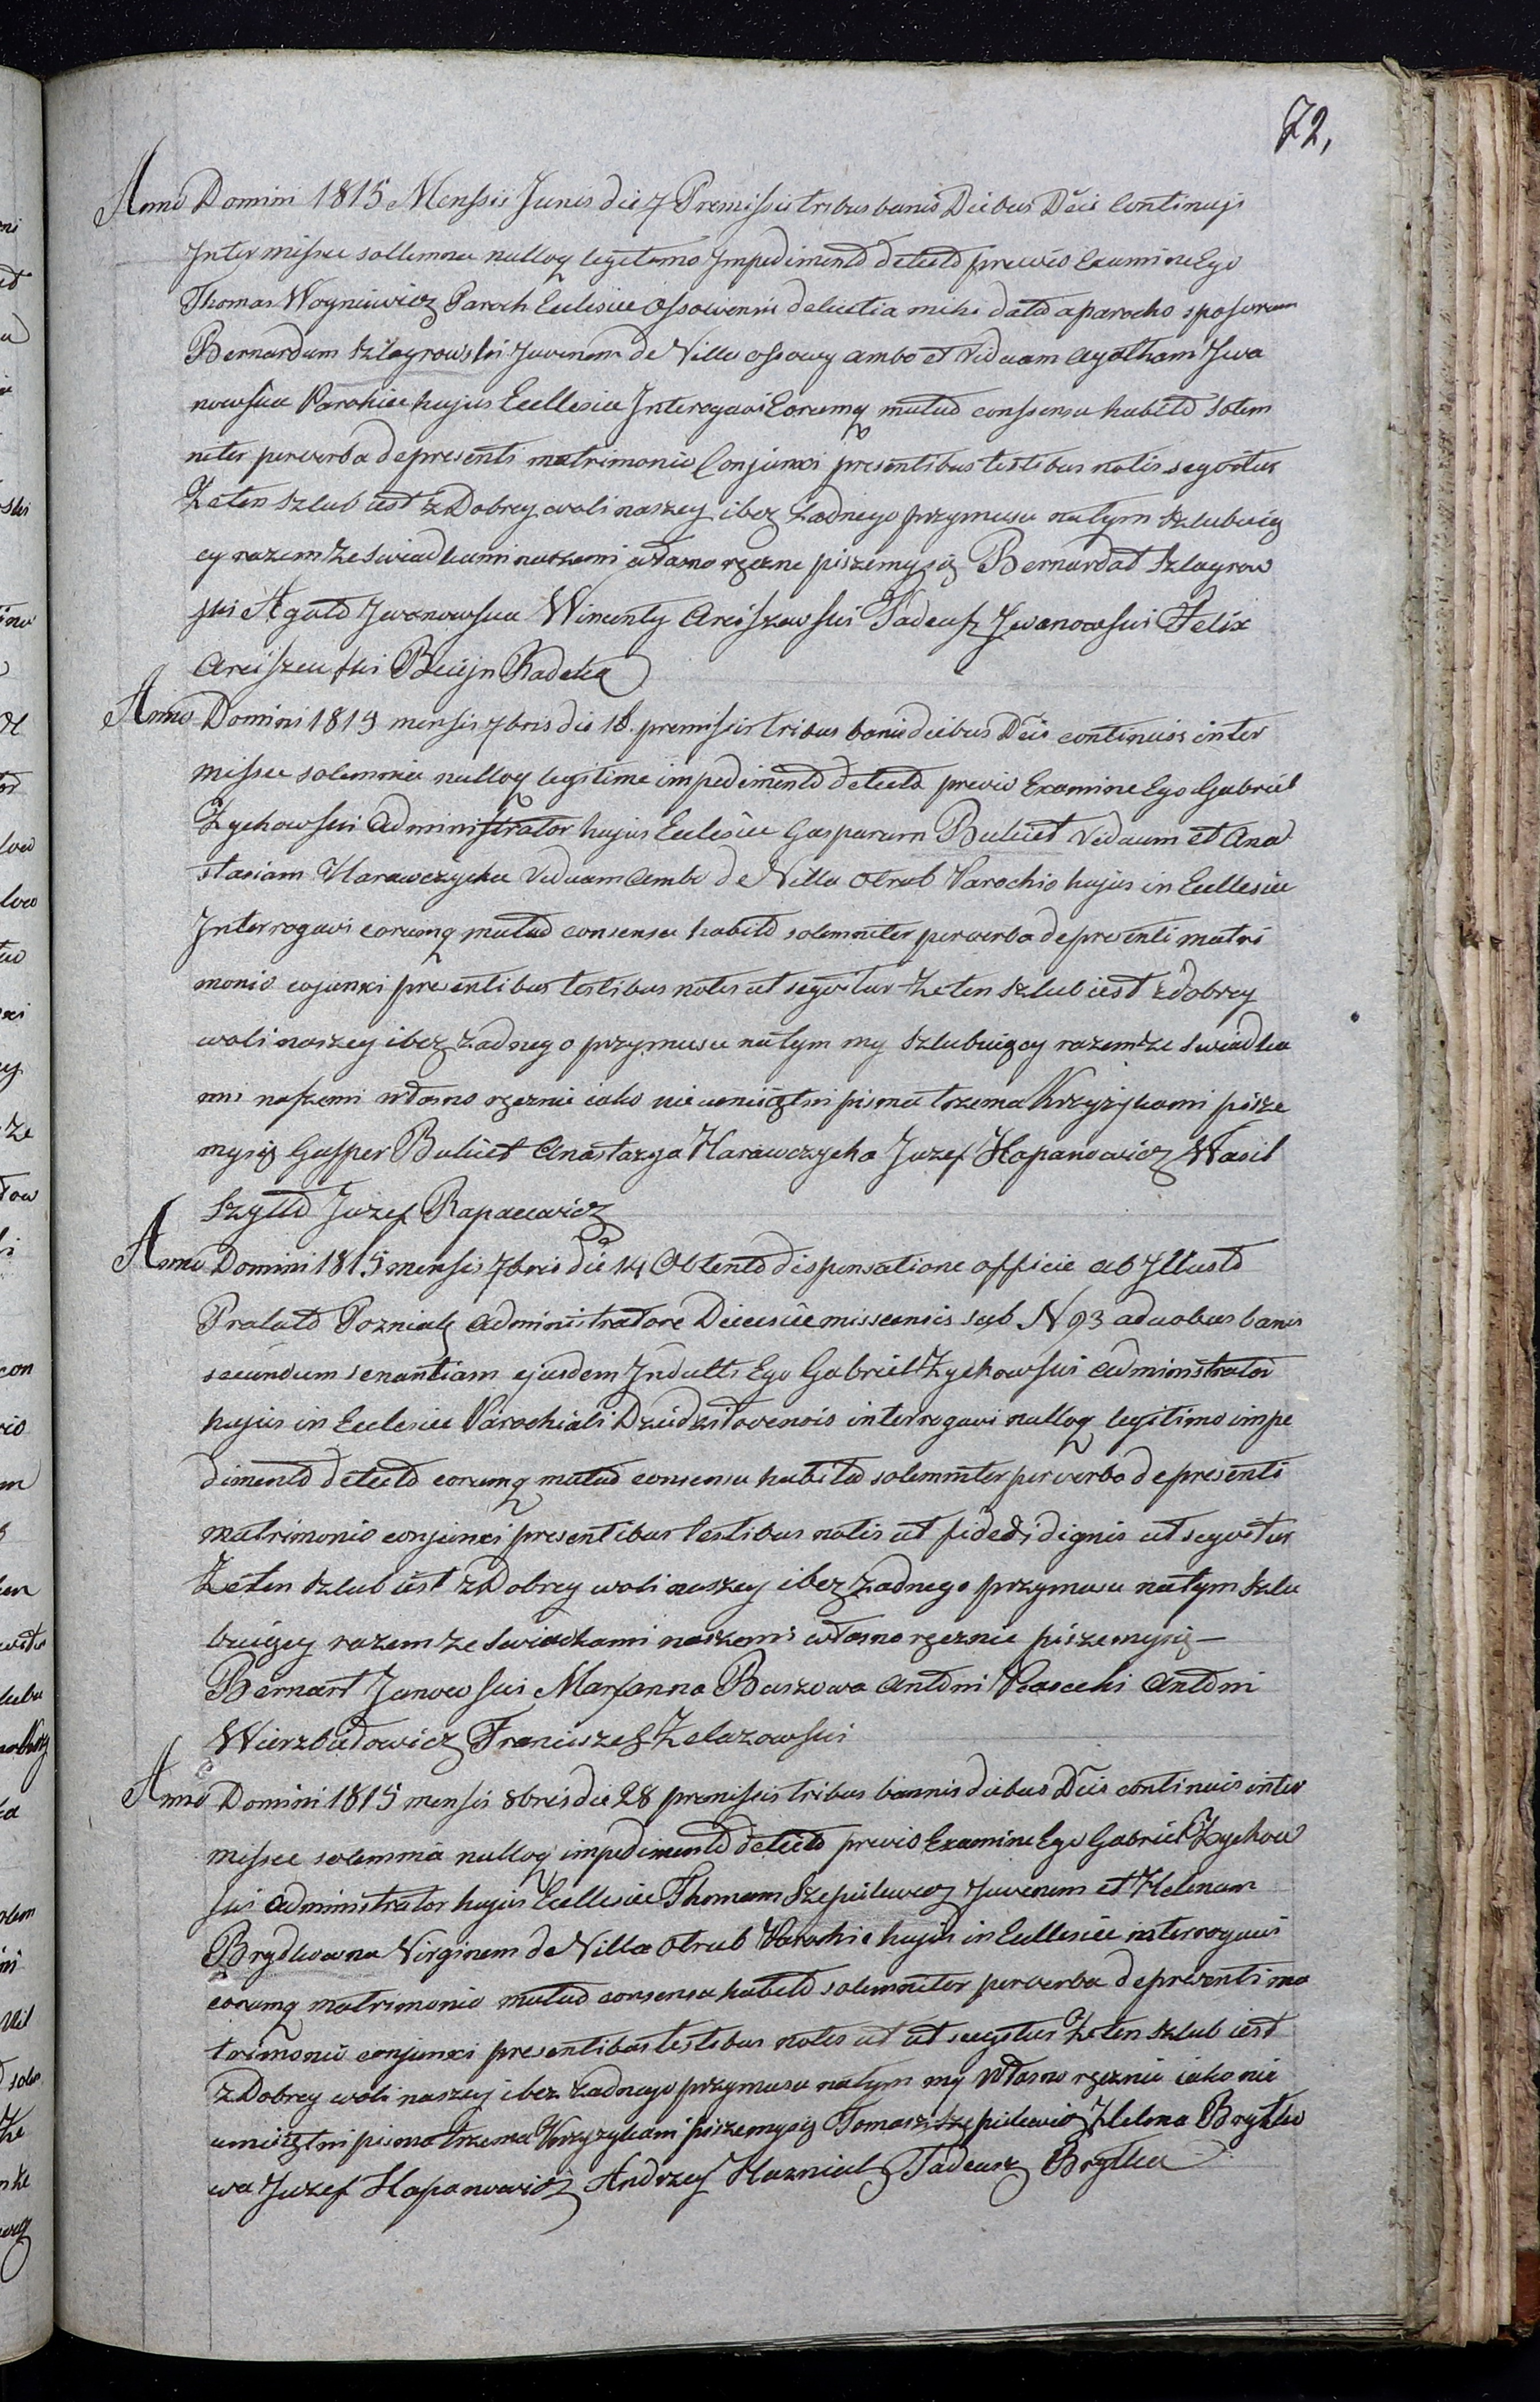 72,
Anno Domini 1815 Menssis Junis die 7 Premissis tribus banis Diebus Dcis Continuis
Inter missee sollemnea nulloq legitemo Impedimento detecto previo Examine Ego
Thomas Woyniewicz Paroch Eclesiee Ossowensis delicetia mihi dato aparocho sposorum
Bernardum Szlagrowski Juvenem de Villa ossowy ambo et Viduam Agatham Iwa
nowska Parohiee hujus Ecllesiee Interogavi Eorumq mutuo conssensu habito Solem
niter perverba depresenti matrimonio Conjunxi presentibus testibus notis segvitur
Ze ten Szlub iest z Dobrey woli naszey i bez Ładnego przymusu natym Szlubuią
cy razem ze Swiadkami naszemi własno ręczne piszemysię Bernardat Szlagrow
ski Agata Iwanowska Wincenty Arciszewski Tadeusz Iwanowski Felix
Arciszewski Radeka
Anno Domini 1815 mensis 7bris die 18. premissis tribus banis diebus Dcis continuis inter
missee solemnia nulloq legitime impedimento detecto previo Examine Ego Gabriel
Zychowski Administrator hujus Eclesiee Gasparum Bukiet Viduum et Ana
stasiam Harawczycha Viduam Ambo de Villa Otrub Parochio hujus in Ecllesiee
Interrogavi eorumq mutuo consensu habito solemniter perverba depresenti matri
monio cojunxi presentibus testibus notis ut segvitur Ze ten Szlub iest z dobrey
woli naszey i bez Zadnego przymusu natym my Szlubuiący razem ze Swiadka
mi naszemi własno ręcznie iako nie umieiętni pisma trzema Krzyżykami pisze
mysię Gasper Bukiet Anastazya Harawczycha Juzef Hapanowicz Wasil
Szyłło Juzef Rapacewicz
Anno Domini 1815 mensis 7bris die 14 Obtento dispensatione officie ab Illusto
Pralato Pozniak Administratore Dieecesiee misscensis sub N 93 aduobus banis
secundum senantiam ejusdem Indulti Ego Gabriel Zychowski Administrator
hujus in Eclesiee Parochiali Dziedziłovensis interrogavi nulloq legitimo impe
dimento detecto eorumq mutuo consensu habito solemniter perverba depresenti
matrimonio conjunxi presentibus testibus notis ut fide dignis ut segvitur
Ze ten Szlub iest z Dobrey woli naszey i bez Zadnego przymusu natym Szlu
buiący razem ze Swiadkami naszemi własno ręcznie piszemysię —
Bernart Janowski Marjanna Buszowa Antoni Antoni
Wierzbułowicz Franciszek Zelazowski
Anno Domini 1815 mensis 8bris die 28 premissis tribus bannis diebus Dcis continuis inter
missee solemnia nulloq impedimento detecto previo Examine Ego Gabriel Zychow
ski Administrator hujus Ecllesiee Thomam Szepielewicz Juvenem et Helenam
Brydkowna Virginem de Villa Otrub Parochie hujus in Ecllesiee interrogavi
eorumq matrimonio mutuo consensu habito solemniter perverba depresenti ma
trimonio conjunxi presentibus testibus notis ut ut seqvitur Ze ten Szlub iest
z Dobrey woli naszey i bez Zadnego przymusu natym my Własno ręcznie iako nie
umieiętni pisma trzema Krzyzykami piszemysię Tomasz Szepielewicz Helena Brytko
wa Juzef Hapanowicz Andrzej Hazniak Tadeusz Brytka